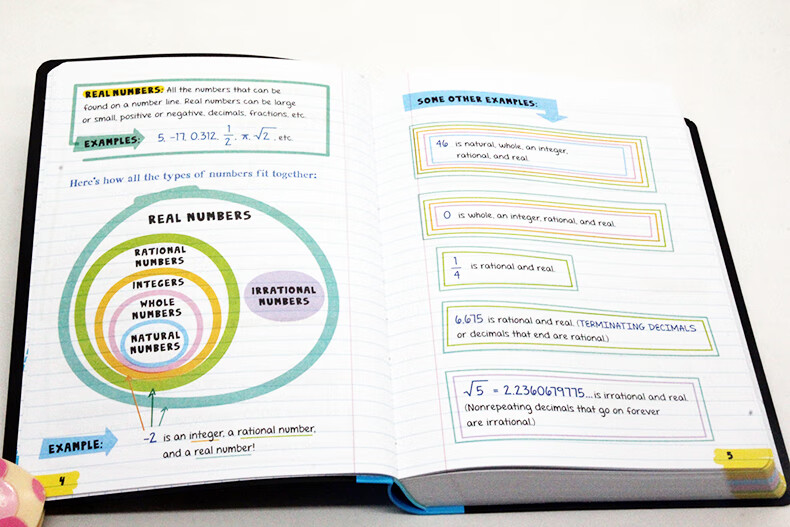 REAL NUMBERS: All the numbers that can be
found on a number line. Real numbers can be large
or small, positive or negative, decimals, fractions, etc.
EXAMPLES: 5, -17, 0.312, 1/2, π, √2, etc.
Here's how all the types of numbers fit together:
REAL NUMBERS
RATIONAL
NUMBERS
INTEGERS
WHOLE
NUMBERS
NATURAL
NUMBERS
IRRATIONAL
NUMBERS
EXAMPLE: -2 is an integer, a rational number,
and a real number!
4
SOME OTHER EXAMPLES:
46 is natural, whole, an integer,
rational, and real.
0 is whole, an integer, rational, and real.
1/4 is rational and real.
6.675 is rational and real. (TERMINATING DECIMALS
or decimals that end are rational.)
√5 = 2.2360679775... is irrational and real.
(Nonrepeating decimals that go on forever
are irrational.)
5